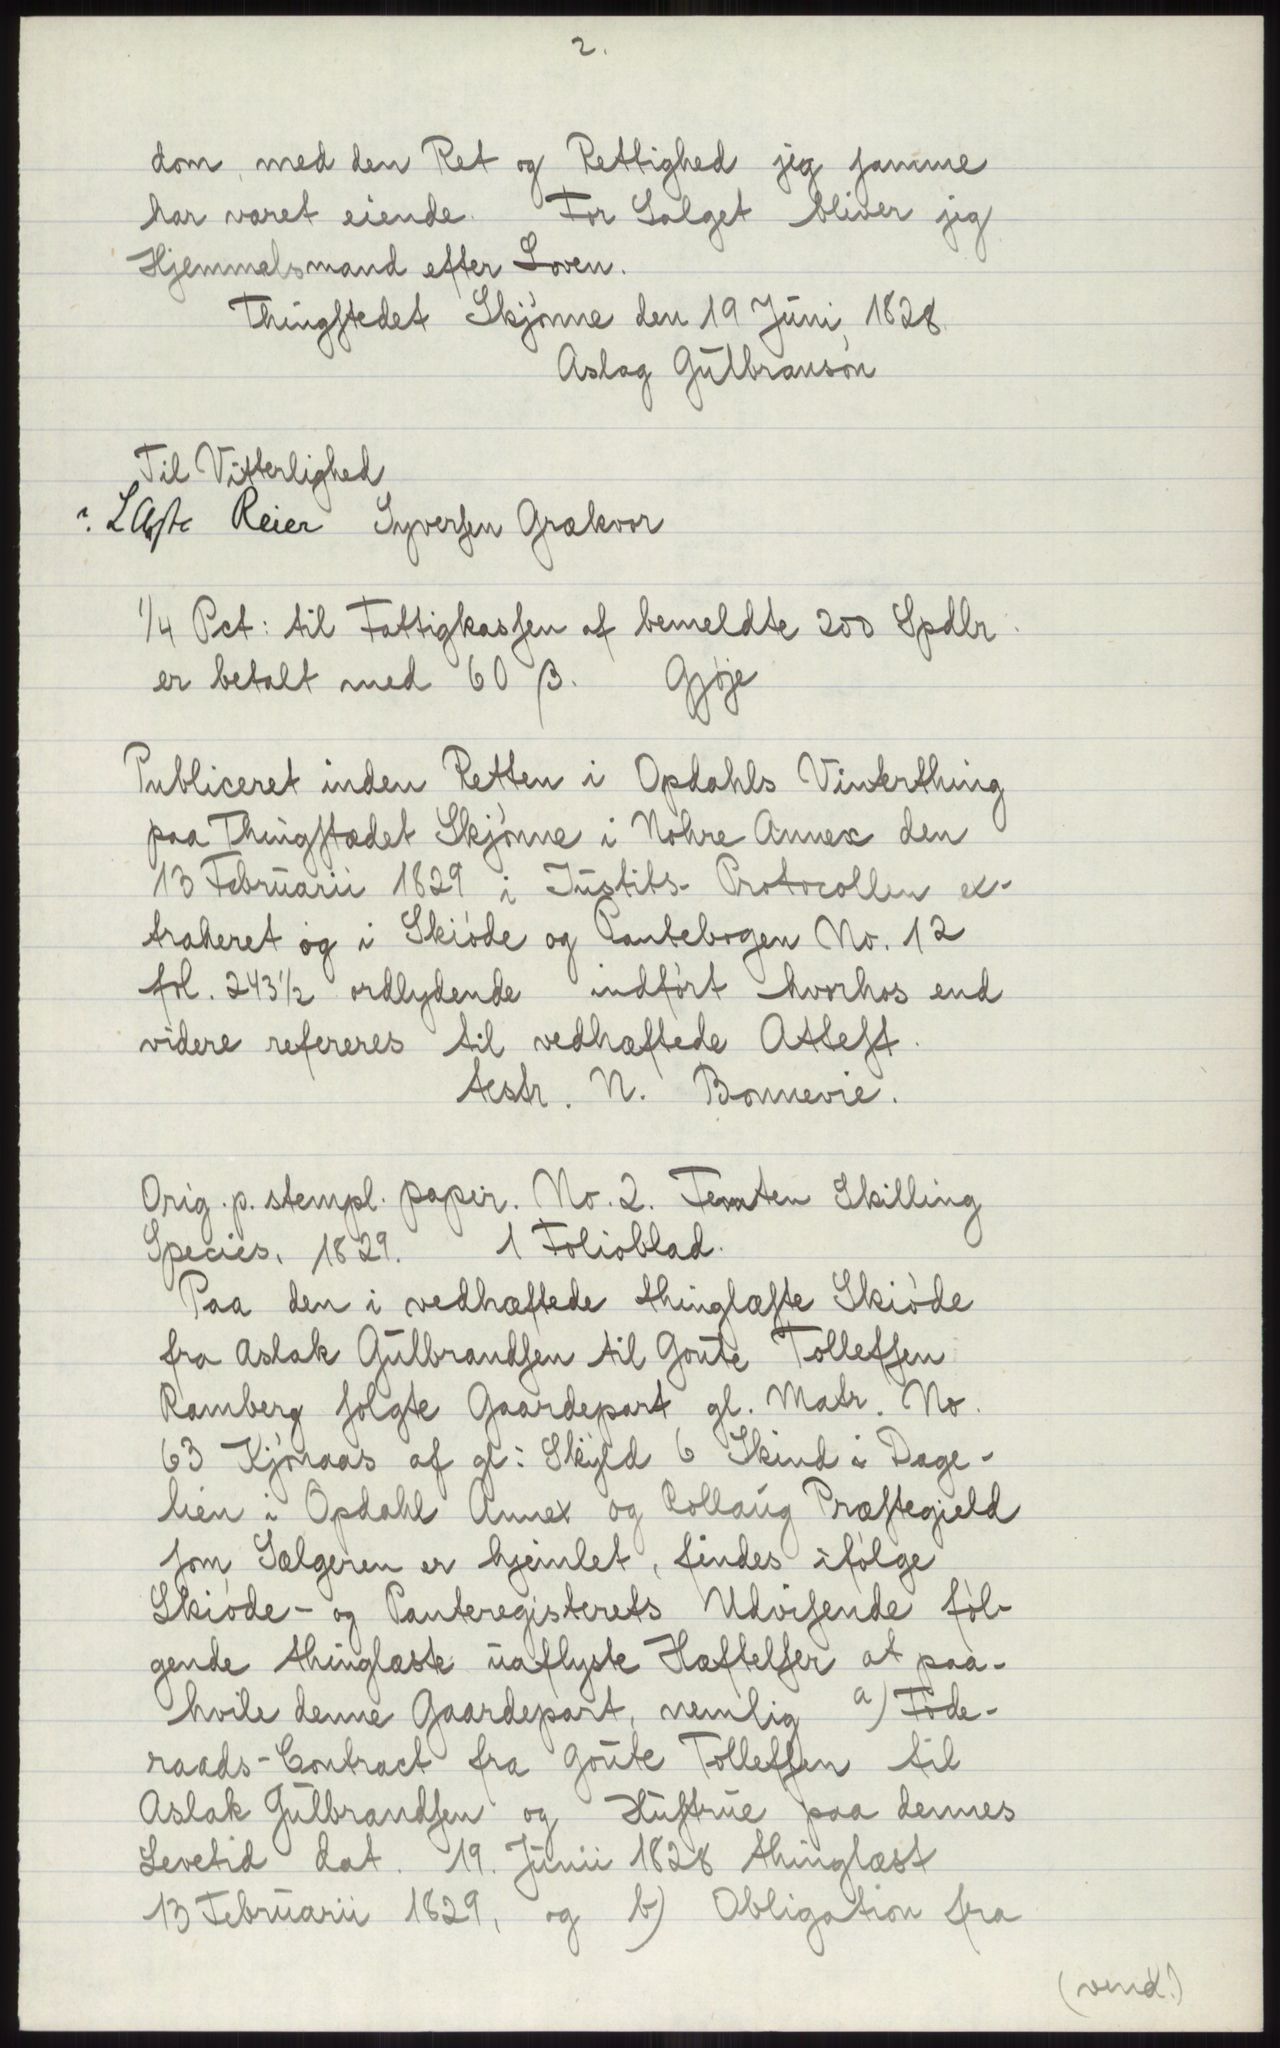 2.
dom, med den Ret og Rettighed jeg samme
har været eiende. For Salget bliver jeg
Hjemmelsmand efter Loven.
Thingstedet Skjönne den 19 Juni 1828
Aslag Gulbransön
Til Vitterlighed
Reier Syversen Grækvor
1/4 Pct: til Fattigkassen af bemeldte 200 Spdlr
er betalt med 60 β. Gjøje
Publiceret inden Retten i Opdahls Vinterthing
paa Thingstædet Skjönne i Nohre Annex den
13 Februarii 1829 i Justits- Protocollen ex-
traheret og i Skiöde og Pantebogen No. 12
fol. 243 1/2 ordlydende indfört hvorhos end
videre refereres til vedhæftede Attest.
testr. N. Bonnevie.
Orig. p. stempl. papir. No. 2. Femten Skilling
Species. 1829. 1 Folioblad.
Paa den i vedhæftede thinglæste Skiöde
fra Aslak Gulbrandsen til Goute Tollefsen
Ramberg solgte Gaardepart gl. Matr. No.
63 Kjönaas af gl: Skyld 6 Skind i Dage-
lien i Opdahl Annex og Rollaug Præstegjeld
som Sælgeren er hjemlet, findes ifölge
Skiöde- og Panteregisterets Udvisende föl-
gende thinglæste uaflyste Hæftelser at paa-
hvile denne Gaardepart, nemlig a) Föde-
raads-Contract fra Goute Tollefsen til
Aslak Gulbrandsen og Hustrue paa dennes
Levetid dat. 19. Junii 1828 thinglæst
13 Februarii 1829, og b) Obligation fra
(vend.)